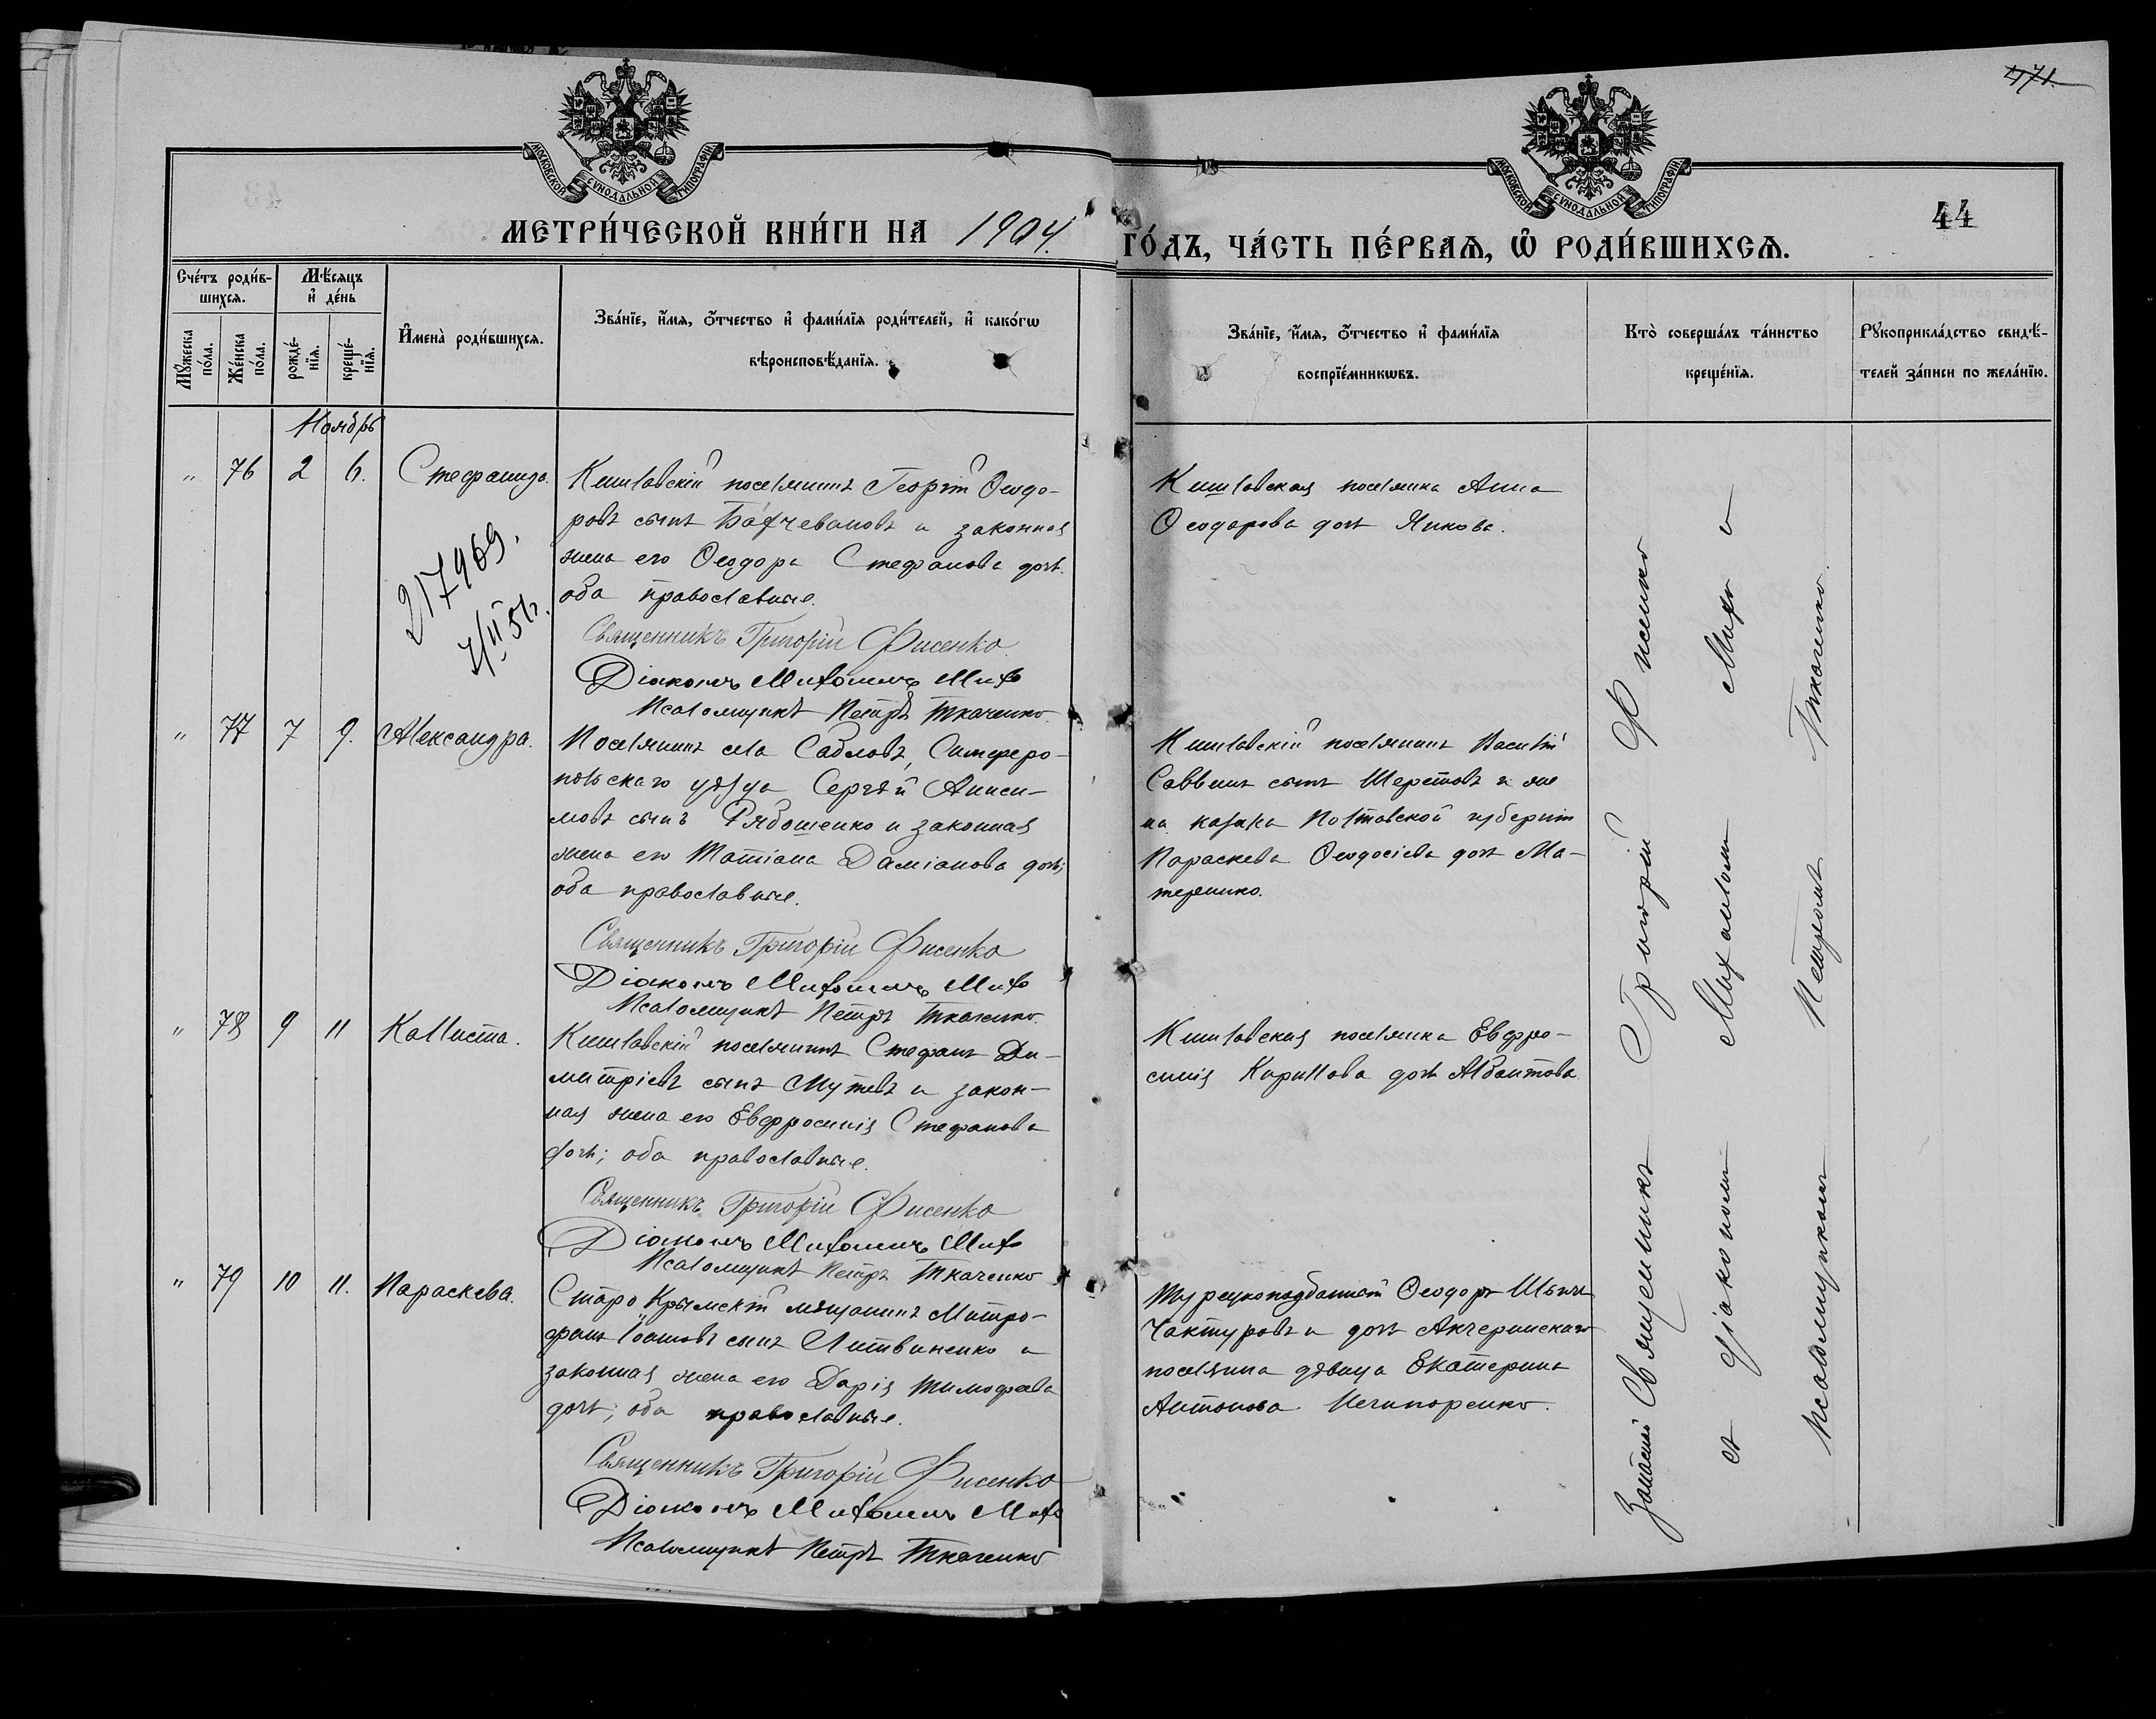 471.
МОСКОВСКОЙ СѴНОДАЛЬНОЙ ТИПОГРАФІИ
МОСКОВСКОЙ СѴНОДАЛЬНОЙ ТИПОГРАФІИ
44
МЕТРИ́ЧЕСКОЙ КНИ́ГИ НА 1904. ГО́ДЪ, ЧА́СТЬ ПЕ́РВАѦ, Ѡ҆ РОДИ́ВШИХСѦ.
Сче́тъ роди́в-
шихсѧ.
Мѣ́сяцъ
и҆ де́нь
Мꙋ́жеска
по́ла.
Же́нска
по́ла.
рожде́-
нїѧ.
креще́-
нїѧ.
И҆мена̀ роди́вшихсѧ.
Зва́нїе, и҆́мѧ, ѻ҆́тчество и҆ фами́лїѧ роди́телей, и҆ како́гѡ
вѣроисповѣ́данїѧ.
Зва́нїе, и҆́мѧ, ѻ҆́тчество и҆ фами́лїѧ
воспрїе́мникѡвъ.
Кто̀ соверша́лъ та́инство
креще́нїѧ.
Рꙋкоприкла́дство свидѣ́-
телей за́писи по жела́нїю.
Ноябрь
" 76 2 6. Стефанида.
Кишлавскій поселянинъ Георгій Ѳеодо-
ровъ сынъ Бахчевановъ и законная
жена его Ѳеодора Стефанова дочь.
оба православные.
Священникъ Григорій Фисенко
Діаконъ Михаилъ Михо
Псаломщикъ Петръ Ткаченко.
Кишлавская поселянка Анна
Ѳеодорова дочь Янкова.
217969.
7/II 56.
" 77 7 9. Александра.
Поселянинъ села Сабловъ, Симферо-
польскаго уѣзда Сергѣй Аниси-
мовъ сынъ Рябошенко и законная
жена его Татіана Даміанова дочь;
оба православные.
Священникъ Григорій Фисенко
Діаконъ Михаилъ Михо
Псаломщикъ Петръ Ткаченко.
Кишлавскій поселянинъ Василій
Саввинъ сынъ Шерстовъ и же
на казака Полтавской губерніи
Параскева Ѳеодосіева дочь Ма-
теренко.
" 78 9 11 Каллиста.
Кишлавскій поселянинъ Стефанъ Ди-
митріевъ сынъ Мутевъ и закон-
ная жена его Евфросинія Стефанова
дочь; оба православные.
Священникъ Григорій Фисенко
Діаконъ Михаилъ Михо
Псаломщикъ Петръ Ткаченко
Кишлавская поселянка Евфро-
синія Кириллова дочь Албантова
" 79 10 11. Параскева.
Старо Крымскій мѣщанинъ Митро-
фанъ Іоанновъ сынъ Литвиненко и
законная жена его Дарія Тимофеева
дочь; оба православные.
Священникъ Григорій Фисенко
Діаконъ Михаилъ Михо
Псаломщикъ Петръ Ткаченко
Турецкоподданный Ѳеодоръ
Чактуровъ и дочь Акчеринскаго
поселянина дѣвица Екатерина
Антонова Нечипоренко.
Священникъ Григорій Фисенко
съ діакономъ Михаиломъ Михо и
псаломщикомъ Петромъ Ткаченко.